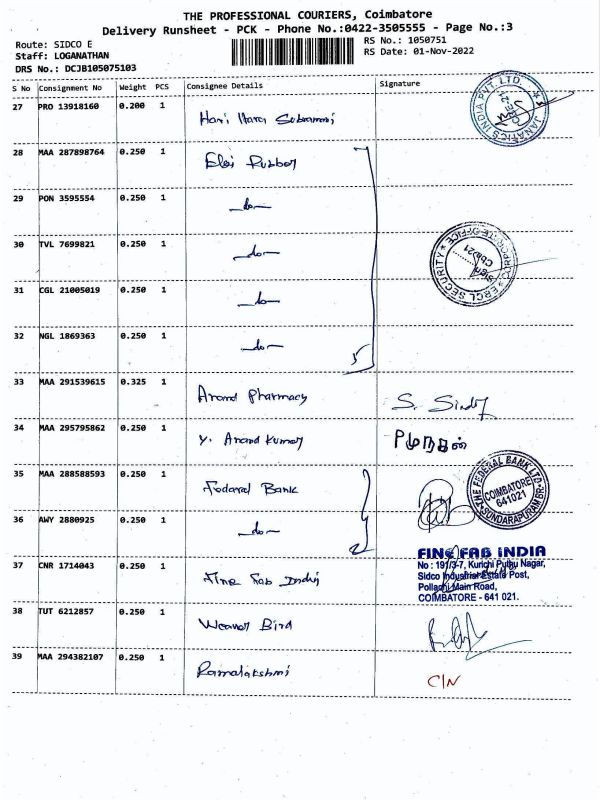 THE PROFESSIONAL COURIERS, Coimbatore
Delivery Runsheet - PCK - Phone No.:0422-3505555 - Page No.:3
Route: SIDCO E
RS No.: 1050751
Staff: LOGANATHAN
RS Date: 01-Nov-2022
DRS No.: DCJB105075103
S No Consignment No Weight PCS Consignee Details Signature
27 PRO 13918160 0.200 1 Hari Hara
JANATICS INDIA PVT. LTD.
28 MAA 287898764 0.250 1 Elgi Rubber
29 PON 3595554 0.250 1 -do-
30 TVL 7699821 0.250 1 -do-
ERCL SECURITY CORPORATE OFFICE
Sign
Cbe-21
31 CGL 21005019 0.250 1 -do-
32 NGL 1869363 0.250 1 -do-
5
33 MAA 291539615 0.325 1 Anand Pharmacy S.
34 MAA 295795862 0.250 1 Y. Anand Kumar
35 MAA 288588593 0.250 1 Federal Bank
THE FEDERAL BANK LTD. SUNDARAPURAM BR.
COIMBATORE
641021
36 AWY 2880925 0.250 1 -do-
2
FINE FAB INDIA
No : 191/3-7, Kurichi Pudhu Nagar,
Sidco Industrial Estate Post,
Pollachi Main Road,
COIMBATORE - 641 021.
37 CNR 1714043 0.250 1 Fine Fab India
38 TUT 6212857 0.250 1 Weaner Bird
39 MAA 294382107 0.250 1 Ramalakshmi C/N